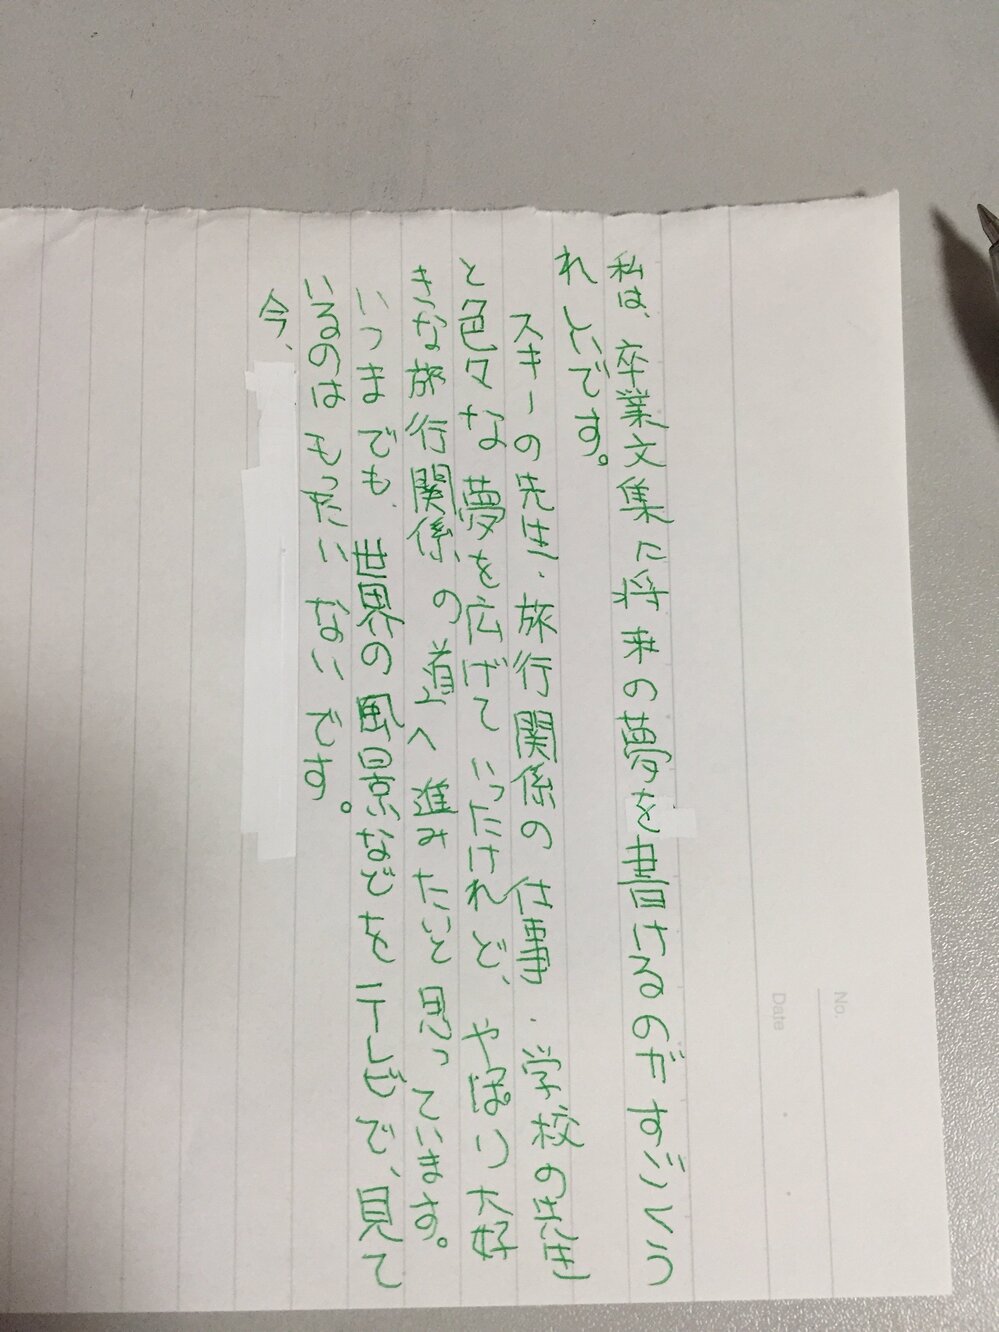 私は、卒業文集に将来の夢を書けるのがすごくう
れしいです。
スキーの先生、旅行関係の仕事・学校の先生
と色々な夢を広げていったけれど、やっぱり大好
きな旅行関係の道へ進みたいと思っています。
いつまでも、世界の風景などをテレビで、見て
いるのはもったいないです。
今、
No.
Date